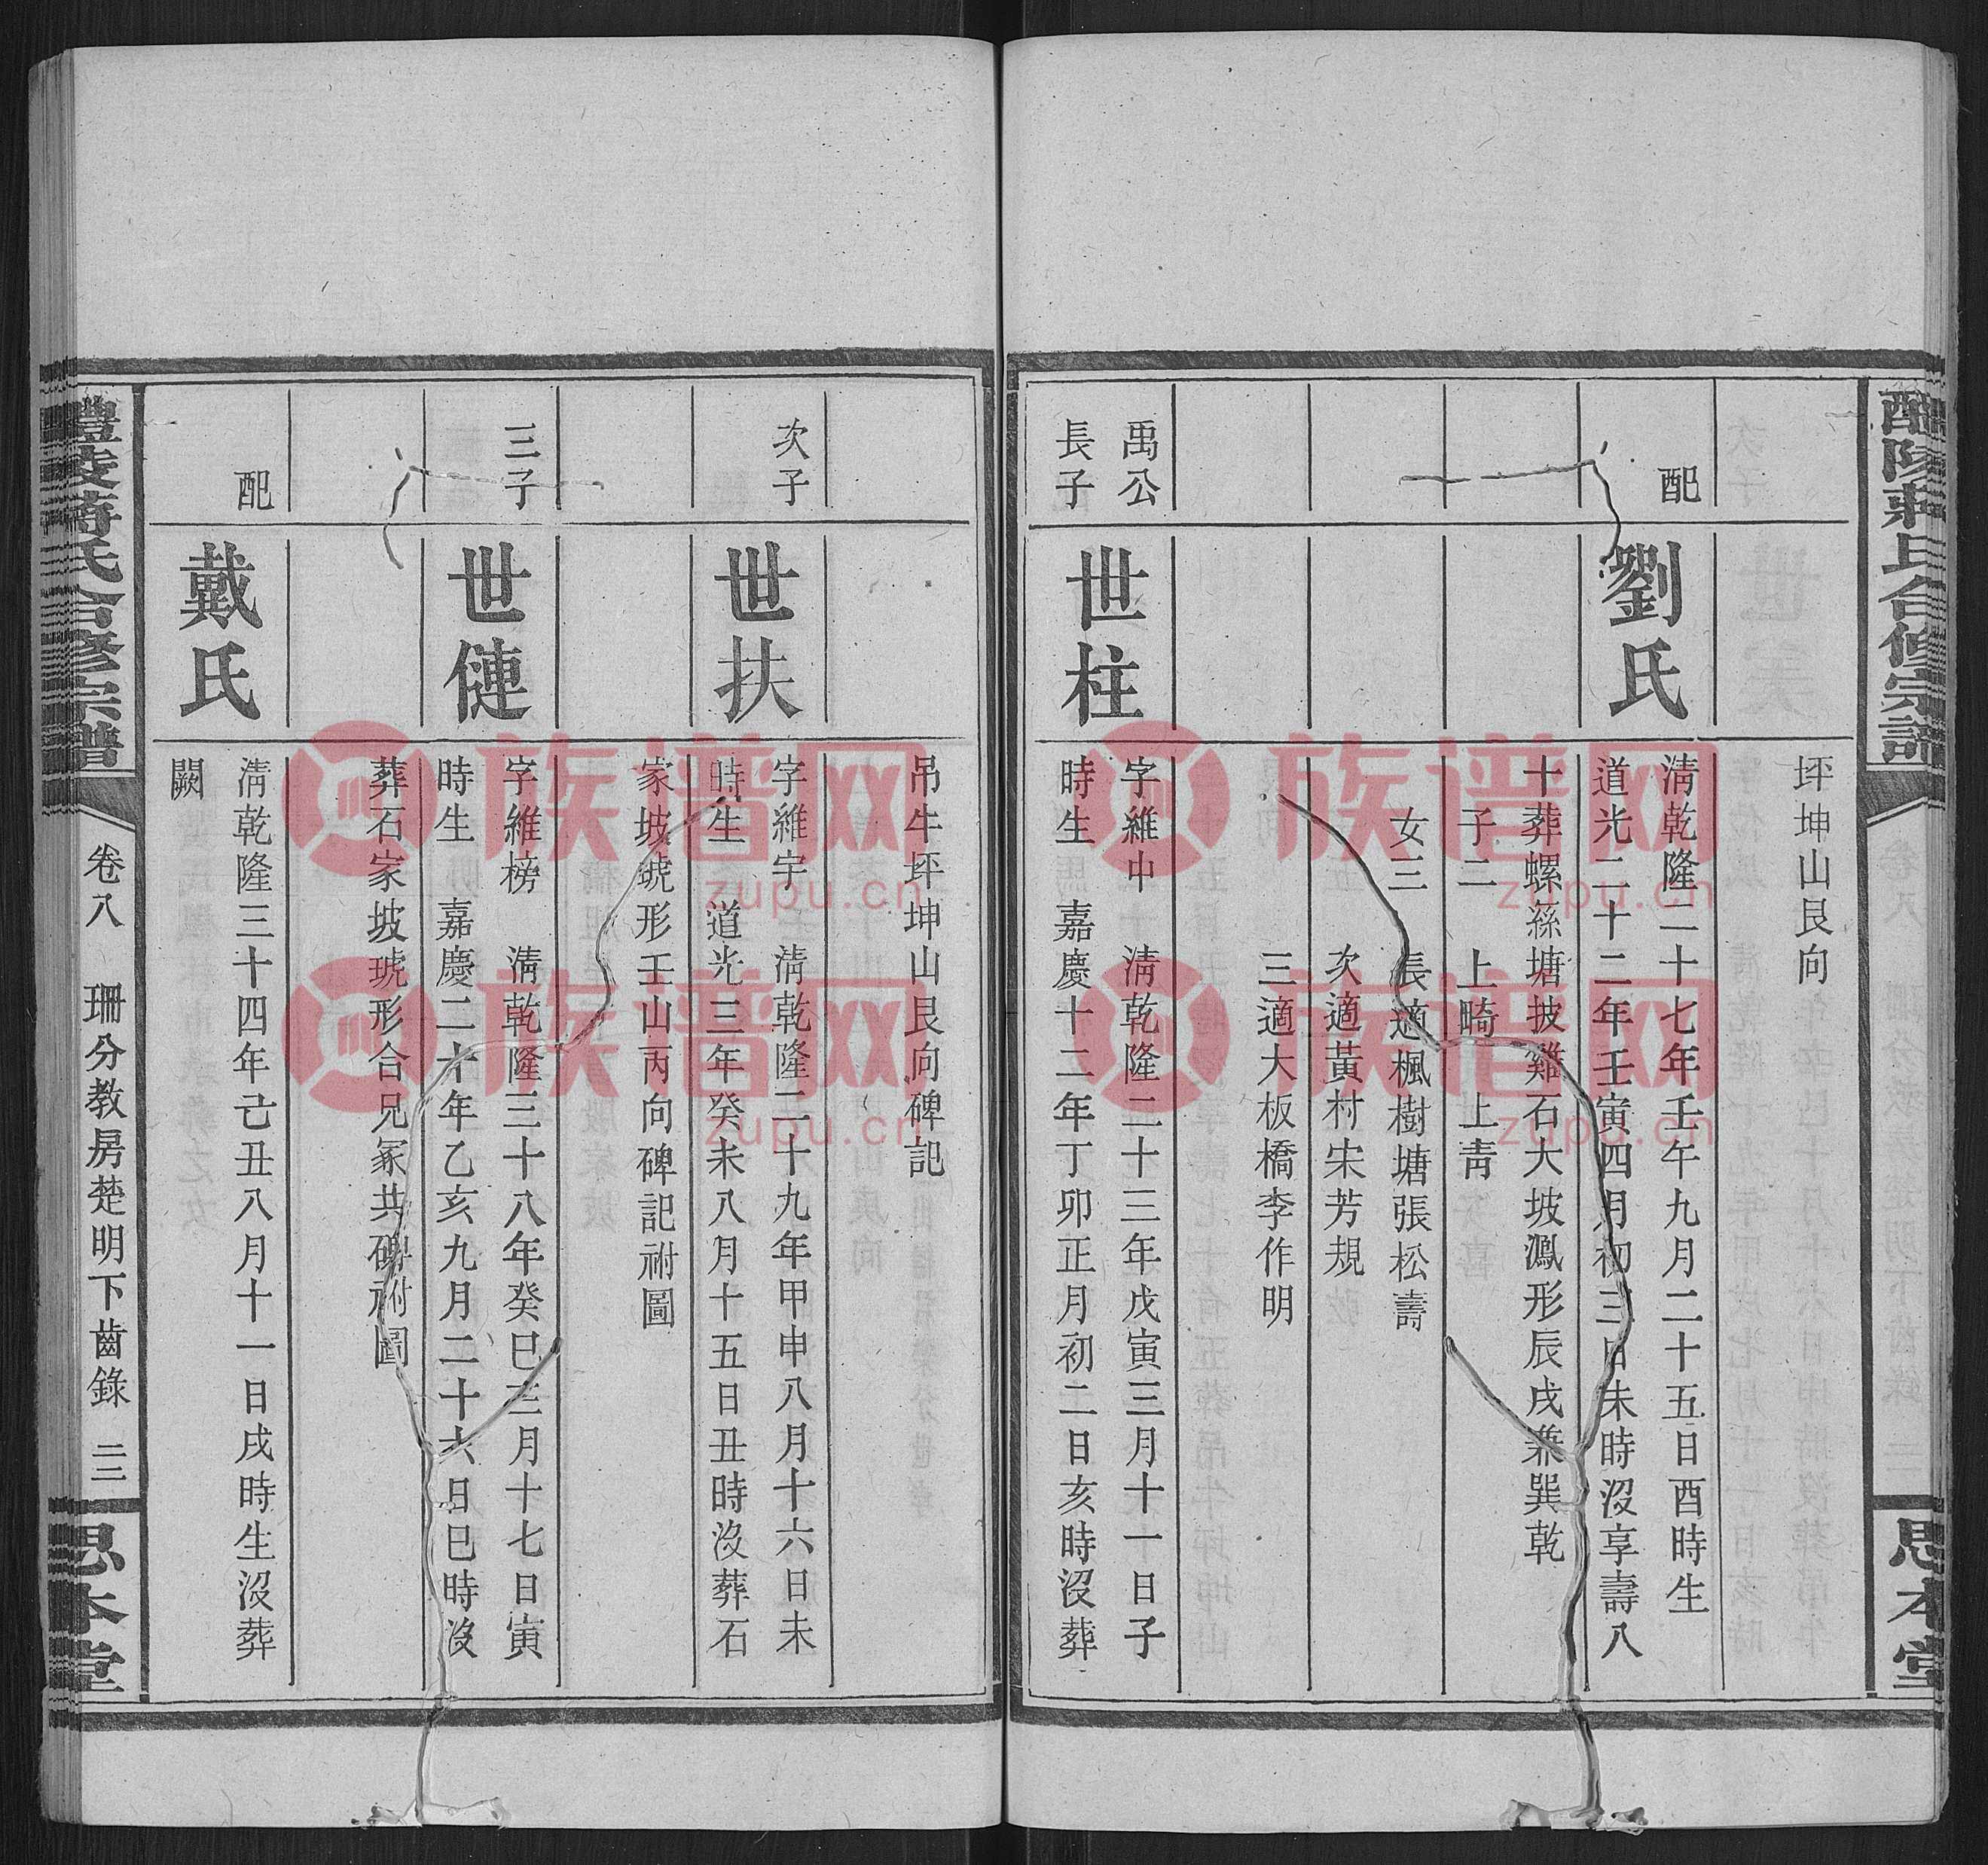 醴陵蔣氏合修宗譜
思本堂
坪坤山艮向
配
劉氏
清乾隆二十七年壬午九月二十五日酉時生
道光二十二年壬寅四月初三日未時沒享壽八
十葬螺絲塘披雞石大坡鳳形辰戌兼巽乾
子二 上畸 上靑
女三 長適楓樹塘張松壽
次適黃村宋芳規
三適大板橋李作明
禹公
長子
世柱
字維中 清乾隆二十三年戊寅三月十一日子
時生 嘉慶十二年丁卯正月初二日亥時沒葬
吊牛坪坤山艮向碑記
次子
世扶
字維宇 清乾隆二十九年甲申八月十六日未
時生 道光三年癸未八月十五日丑時沒葬石
家坡琥形壬山丙向碑記祔圖
三子
世僆
字維榜 清乾隆三十八年癸巳三月十七日寅
時生 嘉慶二十年乙亥九月二十六日巳時沒
葬石家坡琥形合兄冢共碑祔圖
配
戴氏
清乾隆三十四年己丑八月十一日戌時生沒葬
闕
醴陵蔣氏合修宗譜
卷八 珊分教房楚明下齒錄 三
思本堂
族谱网
zupu.cn
族谱网
zupu.cn
族谱网
zupu.cn
族谱网
zupu.cn